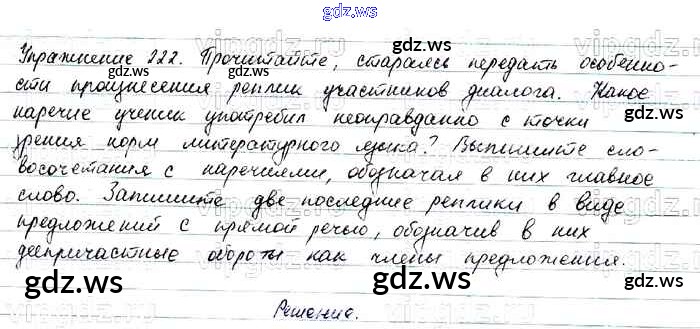 gdz.ws
Упражнение 222. Прочитайте, стараясь передать особенно-
gdz.ws gdz.ws
сти произнесения реплик участников диалога. Какое
наречие ученик употребил неоправданно с точки
gdz.ws gdz.ws
зрения норм литературного языка? Выпишите сло-
восочетания с наречиями, обозначая в них главное
слово. Запишите две последние реплики в виде
gdz.ws gdz.ws
предложений с прямой речью, обозначив в них
деепричастные обороты как члены предложения.
gdz.ws gdz.ws
Решение.